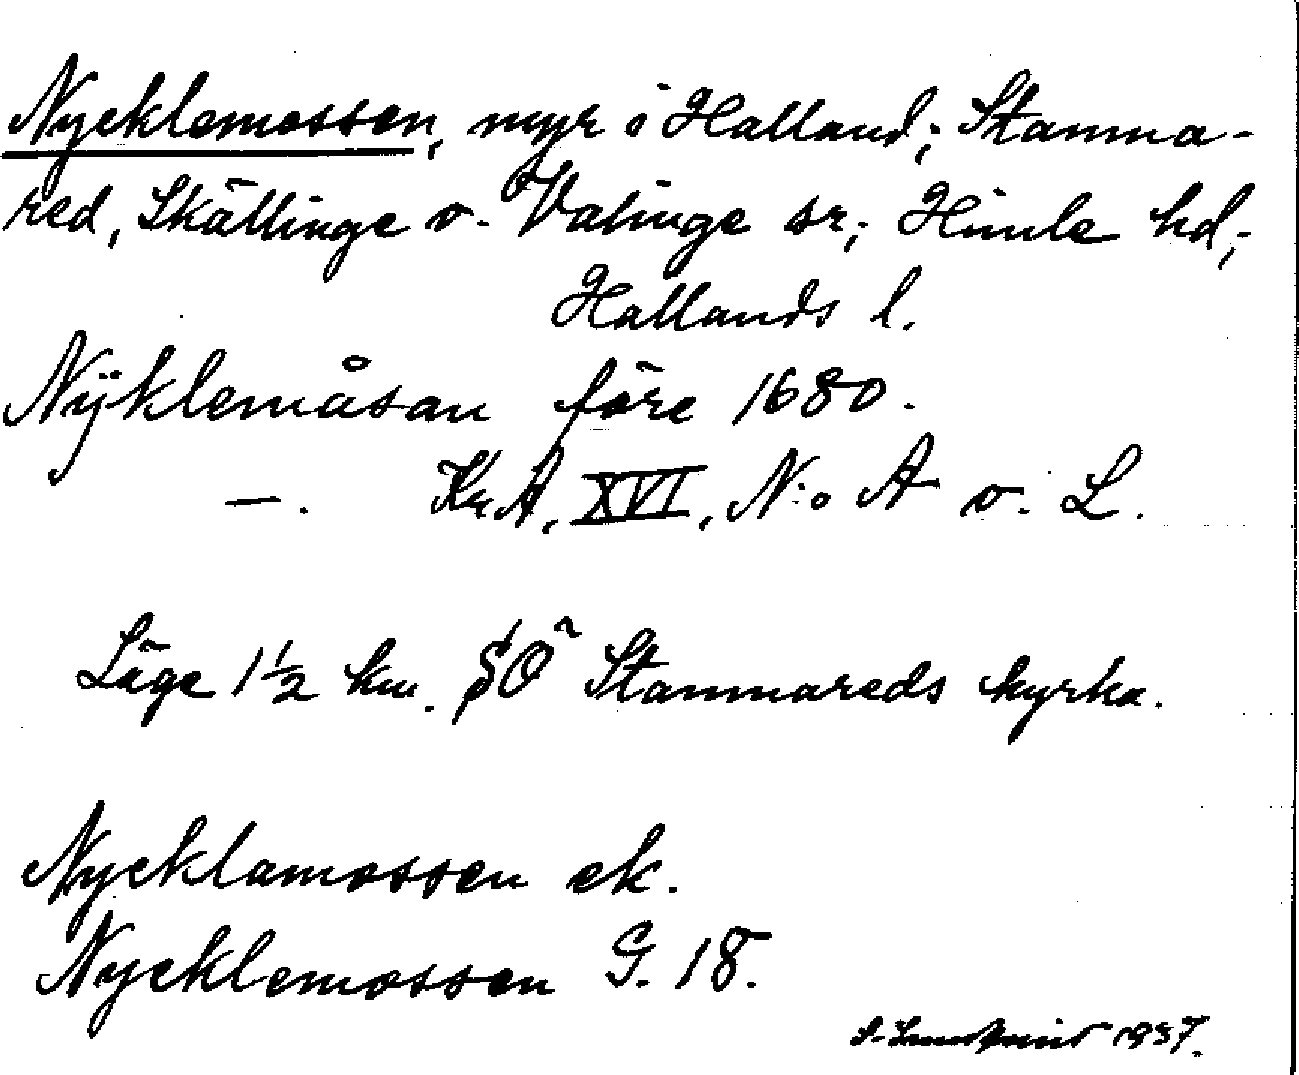 Nycklemossen, myr i Halland; Stamna-
red, Skällinge o. Valinge sr; Himle hd;
Hallands l.
Nÿklemåsan före 1680.
—. KrA, XVI, N:o A o. L.
Läge 1½ km. SO Stamnareds kyrka.
Nycklamossen ek.
Nycklemossen G. 18.
1937.